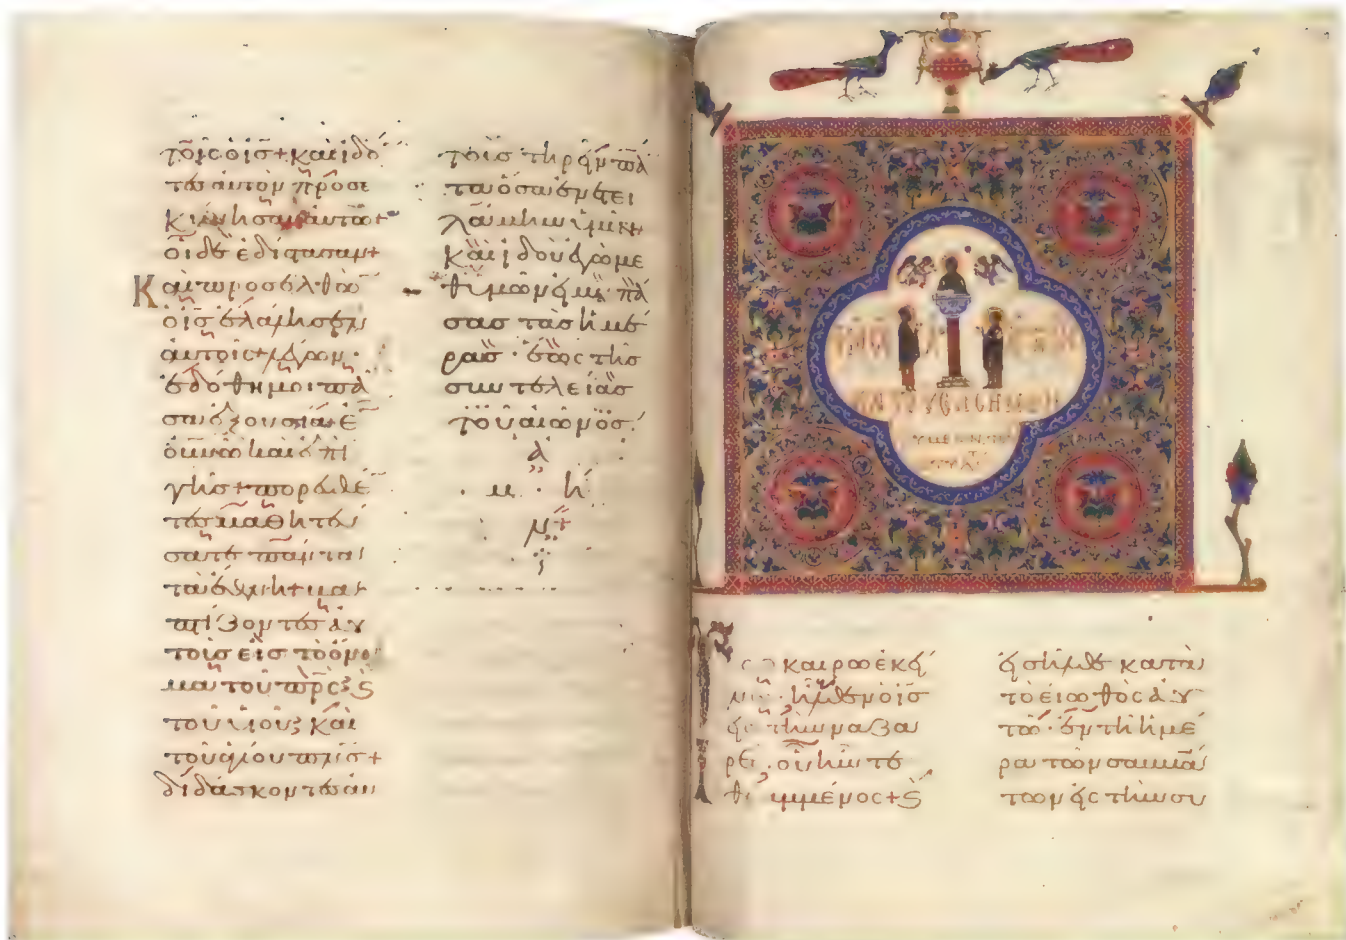 τοῖς ὁ ις + καὶ ἰδό
τες αὐτὸν προσε
κύνησαν αὐτῶ +
οἱ δὲ ἐδίστασαν +
Καὶ προσελθὼ
ὁ ις ἐλάλησεν
αὐτοῖς + λέγων ·
ἐδόθη μοι πᾶ
σα ἐξουσία ἐ
οὐνῶ καὶ ἐπὶ
γῆς + πορευθέ
τες μαθητεύ
σατε πάντα
τὰ ἔθνη + βα
πτίζοντες αὐ
τοὺς εἰς τὸ ὄνο
μα τοῦ πρς ϛ
τοῦ υἱοῦ ϛ καὶ
τοῦ ἁγίου πνς +
διδάσκοντες αὐ
τοὺς τηρεῖν πά
τα ὅσα ἐνετει
λάμην ὑμῖν +
καὶ ἰδοὺ ἐγὼ με
θ ὑμῶν εἰμι πά
σας τὰς ἡμέ
ρας · ἕως τῆς
συντελείας
τοῦ αἰῶνος ·
ἀ
μ · ή
ν +
καιρῶ ἐκεί
ἦλθεν ὁ ις
ἐς τὴν ναζα
ρέτ · οὗ ἦν τε
θραμμένος + ϛ
ἐσῆλθε κατὰ
τὸ εἰωθὸς αὐ
τῶ · ἐν τῆ ἡμέ
ρα τῶν σαββά
των ἐς τὴν συ